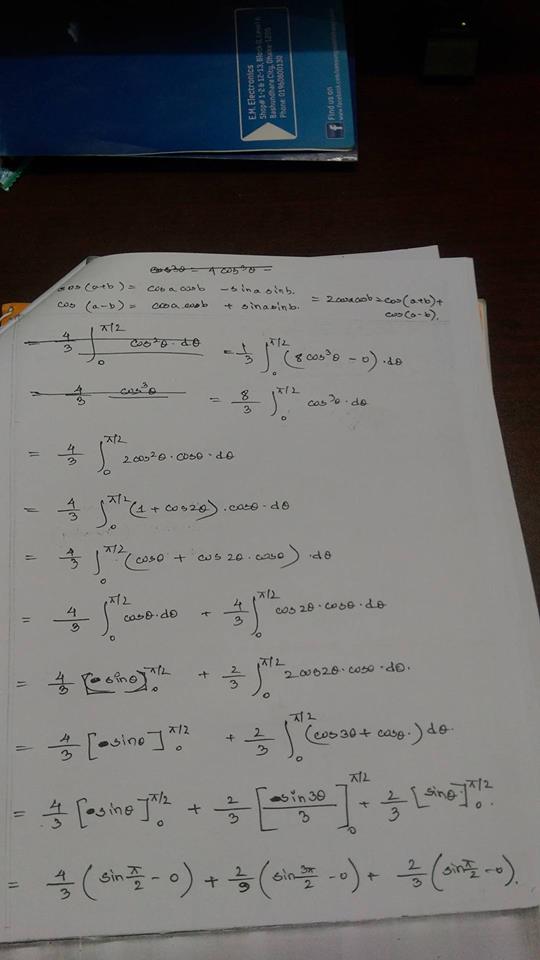 E.M. Electronics
Shop# 1-2 & 12-13, Block-B, Level 6,
Bashundhara City, Dhaka-1205
Phone: 01960800130
Find us on
cos3θ = 4cos³θ −
cos(a+b) = cosa cosb − sina sinb.
cos(a−b) = cosa cosb + sina sinb. = 2cosacosb = cos(a+b) + cos(a−b).
= 4/3 ∫₀^π/2 cos²θ·dθ = 1/3 ∫₀^π/2 (8cos³θ − 0)·dθ
= 4/3 cos³θ = 8/3 ∫₀^π/2 cos³θ·dθ
= 4/3 ∫₀^π/2 2cos²θ·cosθ·dθ
= 4/3 ∫₀^π/2 (1 + cos2θ)·cosθ·dθ
= 4/3 ∫₀^π/2 (cosθ + cos2θ·cosθ)·dθ
= 4/3 ∫₀^π/2 cosθ·dθ + 4/3 ∫₀^π/2 cos2θ·cosθ·dθ
= 4/3 [sinθ]₀^π/2 + 2/3 ∫₀^π/2 2cos2θ·cosθ·dθ.
= 4/3 [sinθ]₀^π/2 + 2/3 ∫₀^π/2 (cos3θ + cosθ·)dθ.
= 4/3 [sinθ]₀^π/2 + 2/3 [sin3θ/3]₀^π/2 + 2/3 [sinθ]₀^π/2.
= 4/3 (sin π/2 − 0) + 2/9 (sin 3π/2 − 0) + 2/3 (sin π/2 − 0).